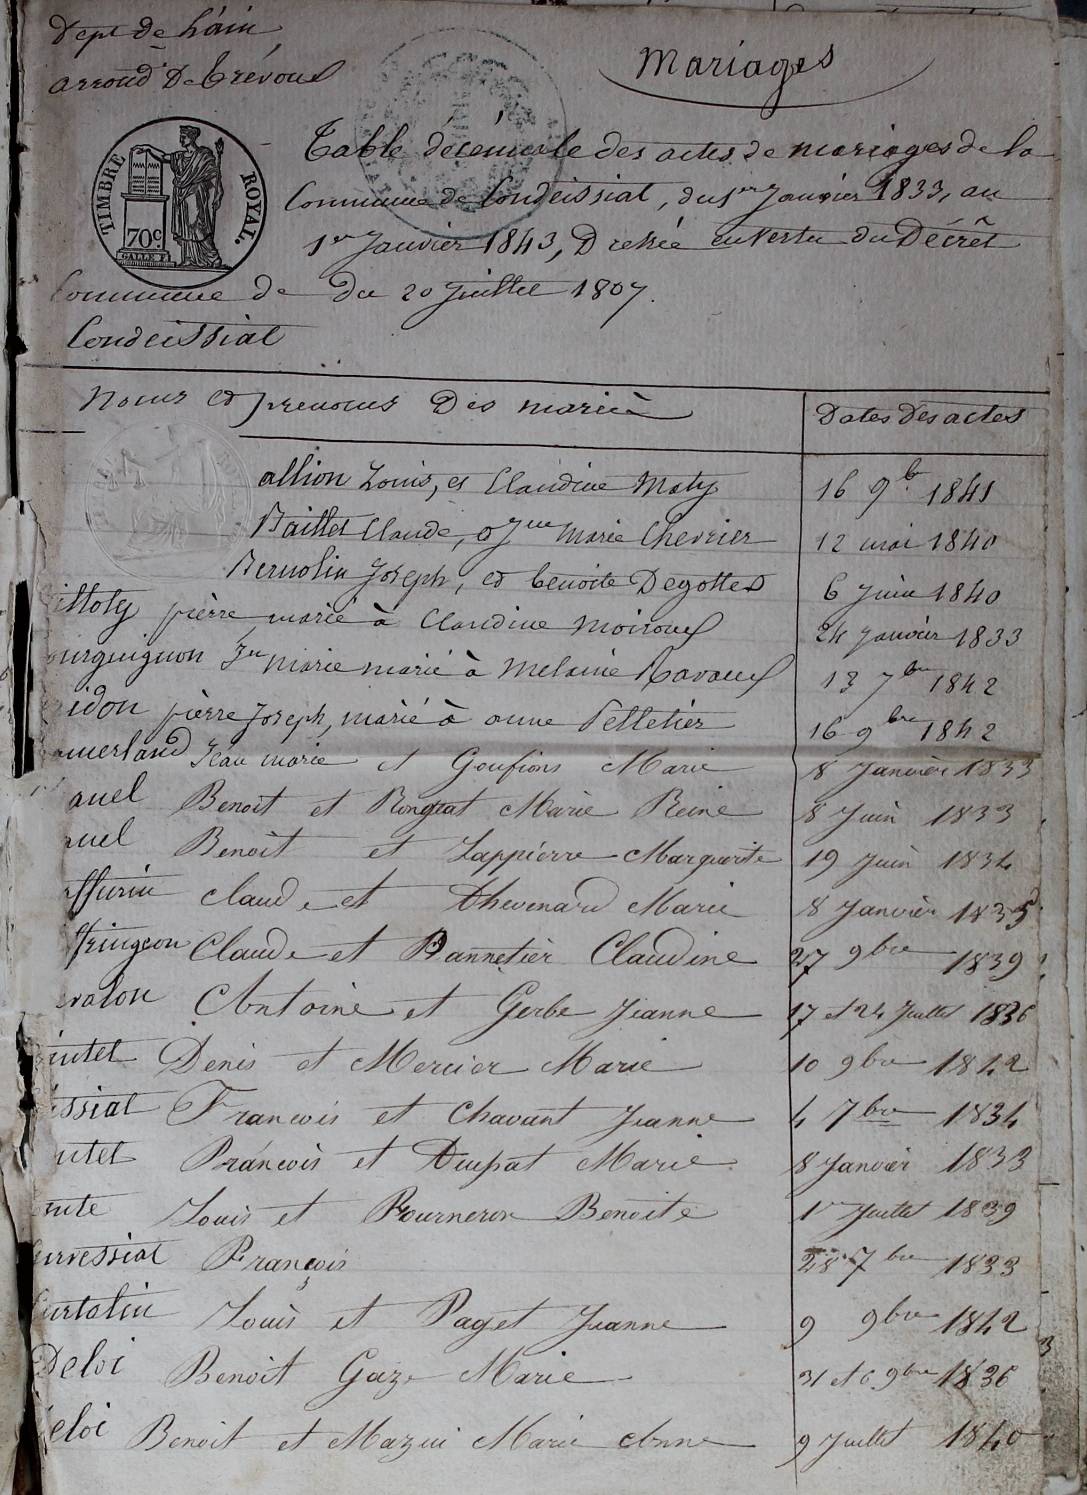 Dept de L'ain
arrond^t De Trévoux
Mariages
TIMBRE ROYAL.
70c
Table décennale des actes de mariages de la
Commune de Condeissiat, du 1er Janvier 1833, au
1er Janvier 1843, Dressée en vertu du Décrêt
Commune de du 20 Juillet 1807.
Condeissiat
Noms et prenoms Des mariés Dates des actes
allion Louis, et Claudine Maty 16 9b 1841
Baillet Claude, et Jne Marie Chevrier 12 mai 1840
Bernolin Joseph, et benoite Degottes 6 Juin 1840
pièrre, marié à Claudine Moiroux 24 Janvier 1833
ourguignon Jn Marie marié à Melanie Ravaux 13 7bre 1842
idon pièrre Joseph, marié à anne Pelletier 16 9bre 1842
amerland Jean marie et Goufions Marie 8 Janvièr 1833
auel Benoit et Rongeat Marie Reine 8 Juin 1833
nuel Benoit et Lappièrre Marguerite 19 Juin 1834
ffurin Claude et Thevenard Marie 8 Janvièr 1835
ffringeon Claude et Bannetièr Claudine 27 9bre 1839
evalon Antoine et Gerbe Jeanne 17 et 24 Juillet 1836
intet Denis et Mercier Marie 10 9bre 1842
issiat Francois et Chavant Jeanne 4 7bre 1834
utet Francois et Dupat Marie 8 Janvièr 1833
mte Louis et Fourneron Benoite 1er Juillet 1839
urvessiat François 28 7bre 1833
urtalin Louis et Paget Jeanne 9 9bre 1842
Deloi Benoit Gaze Marie 31 et 6 9bre 1836
eloi Benoit et Mazui Marie Anne 9 Juillet 1840